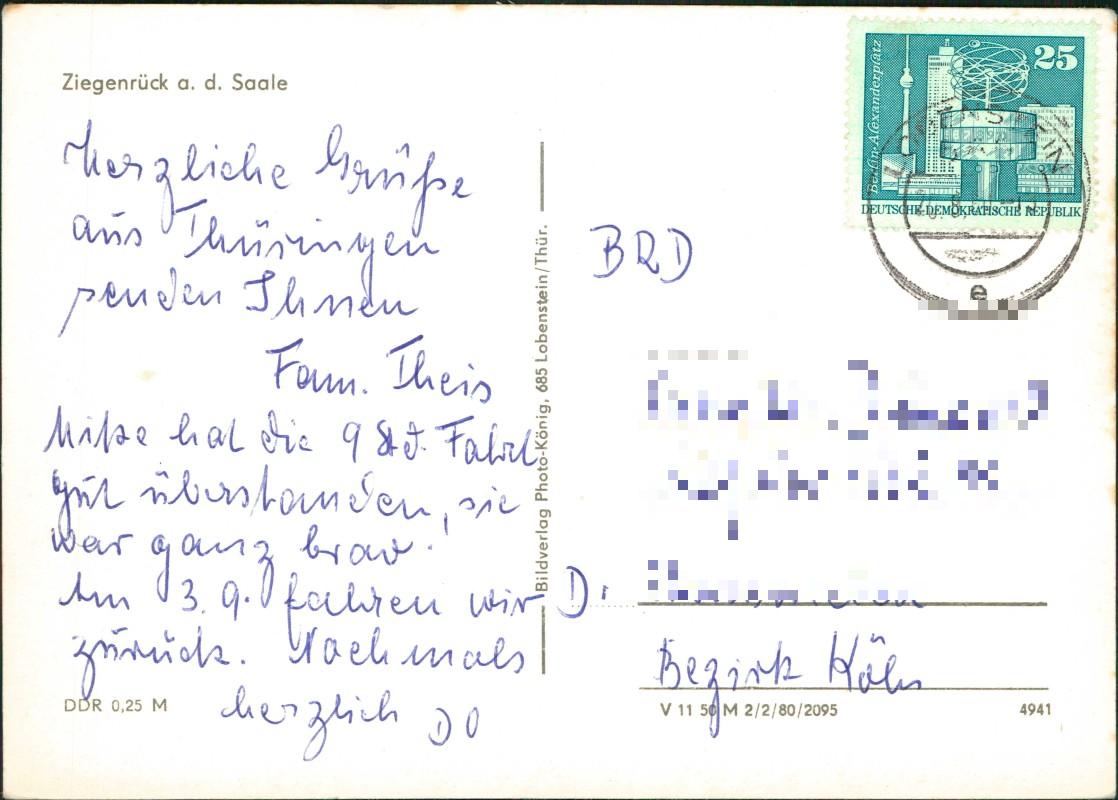 Ziegenrück a. d. Saale
Herzliche Grüße
aus Thüringen
senden Ihnen
Fam. Theis
hat die 9 Std. Fahrt
gut überstanden, sie
war ganz brav.
Am 3. 9. fahren wir
zurück. Nochmals
herzlich
DDR 0,25 M
Bildverlag Photo-König, 685 Lobenstein/Thür.
Berlin-Alexanderplatz
25
DEUTSCHE DEMOKRATISCHE REPUBLIK
LOBENSTEIN
e
BRD
Bezirk Köln
V 11 50 M 2/2/80/2095
4941